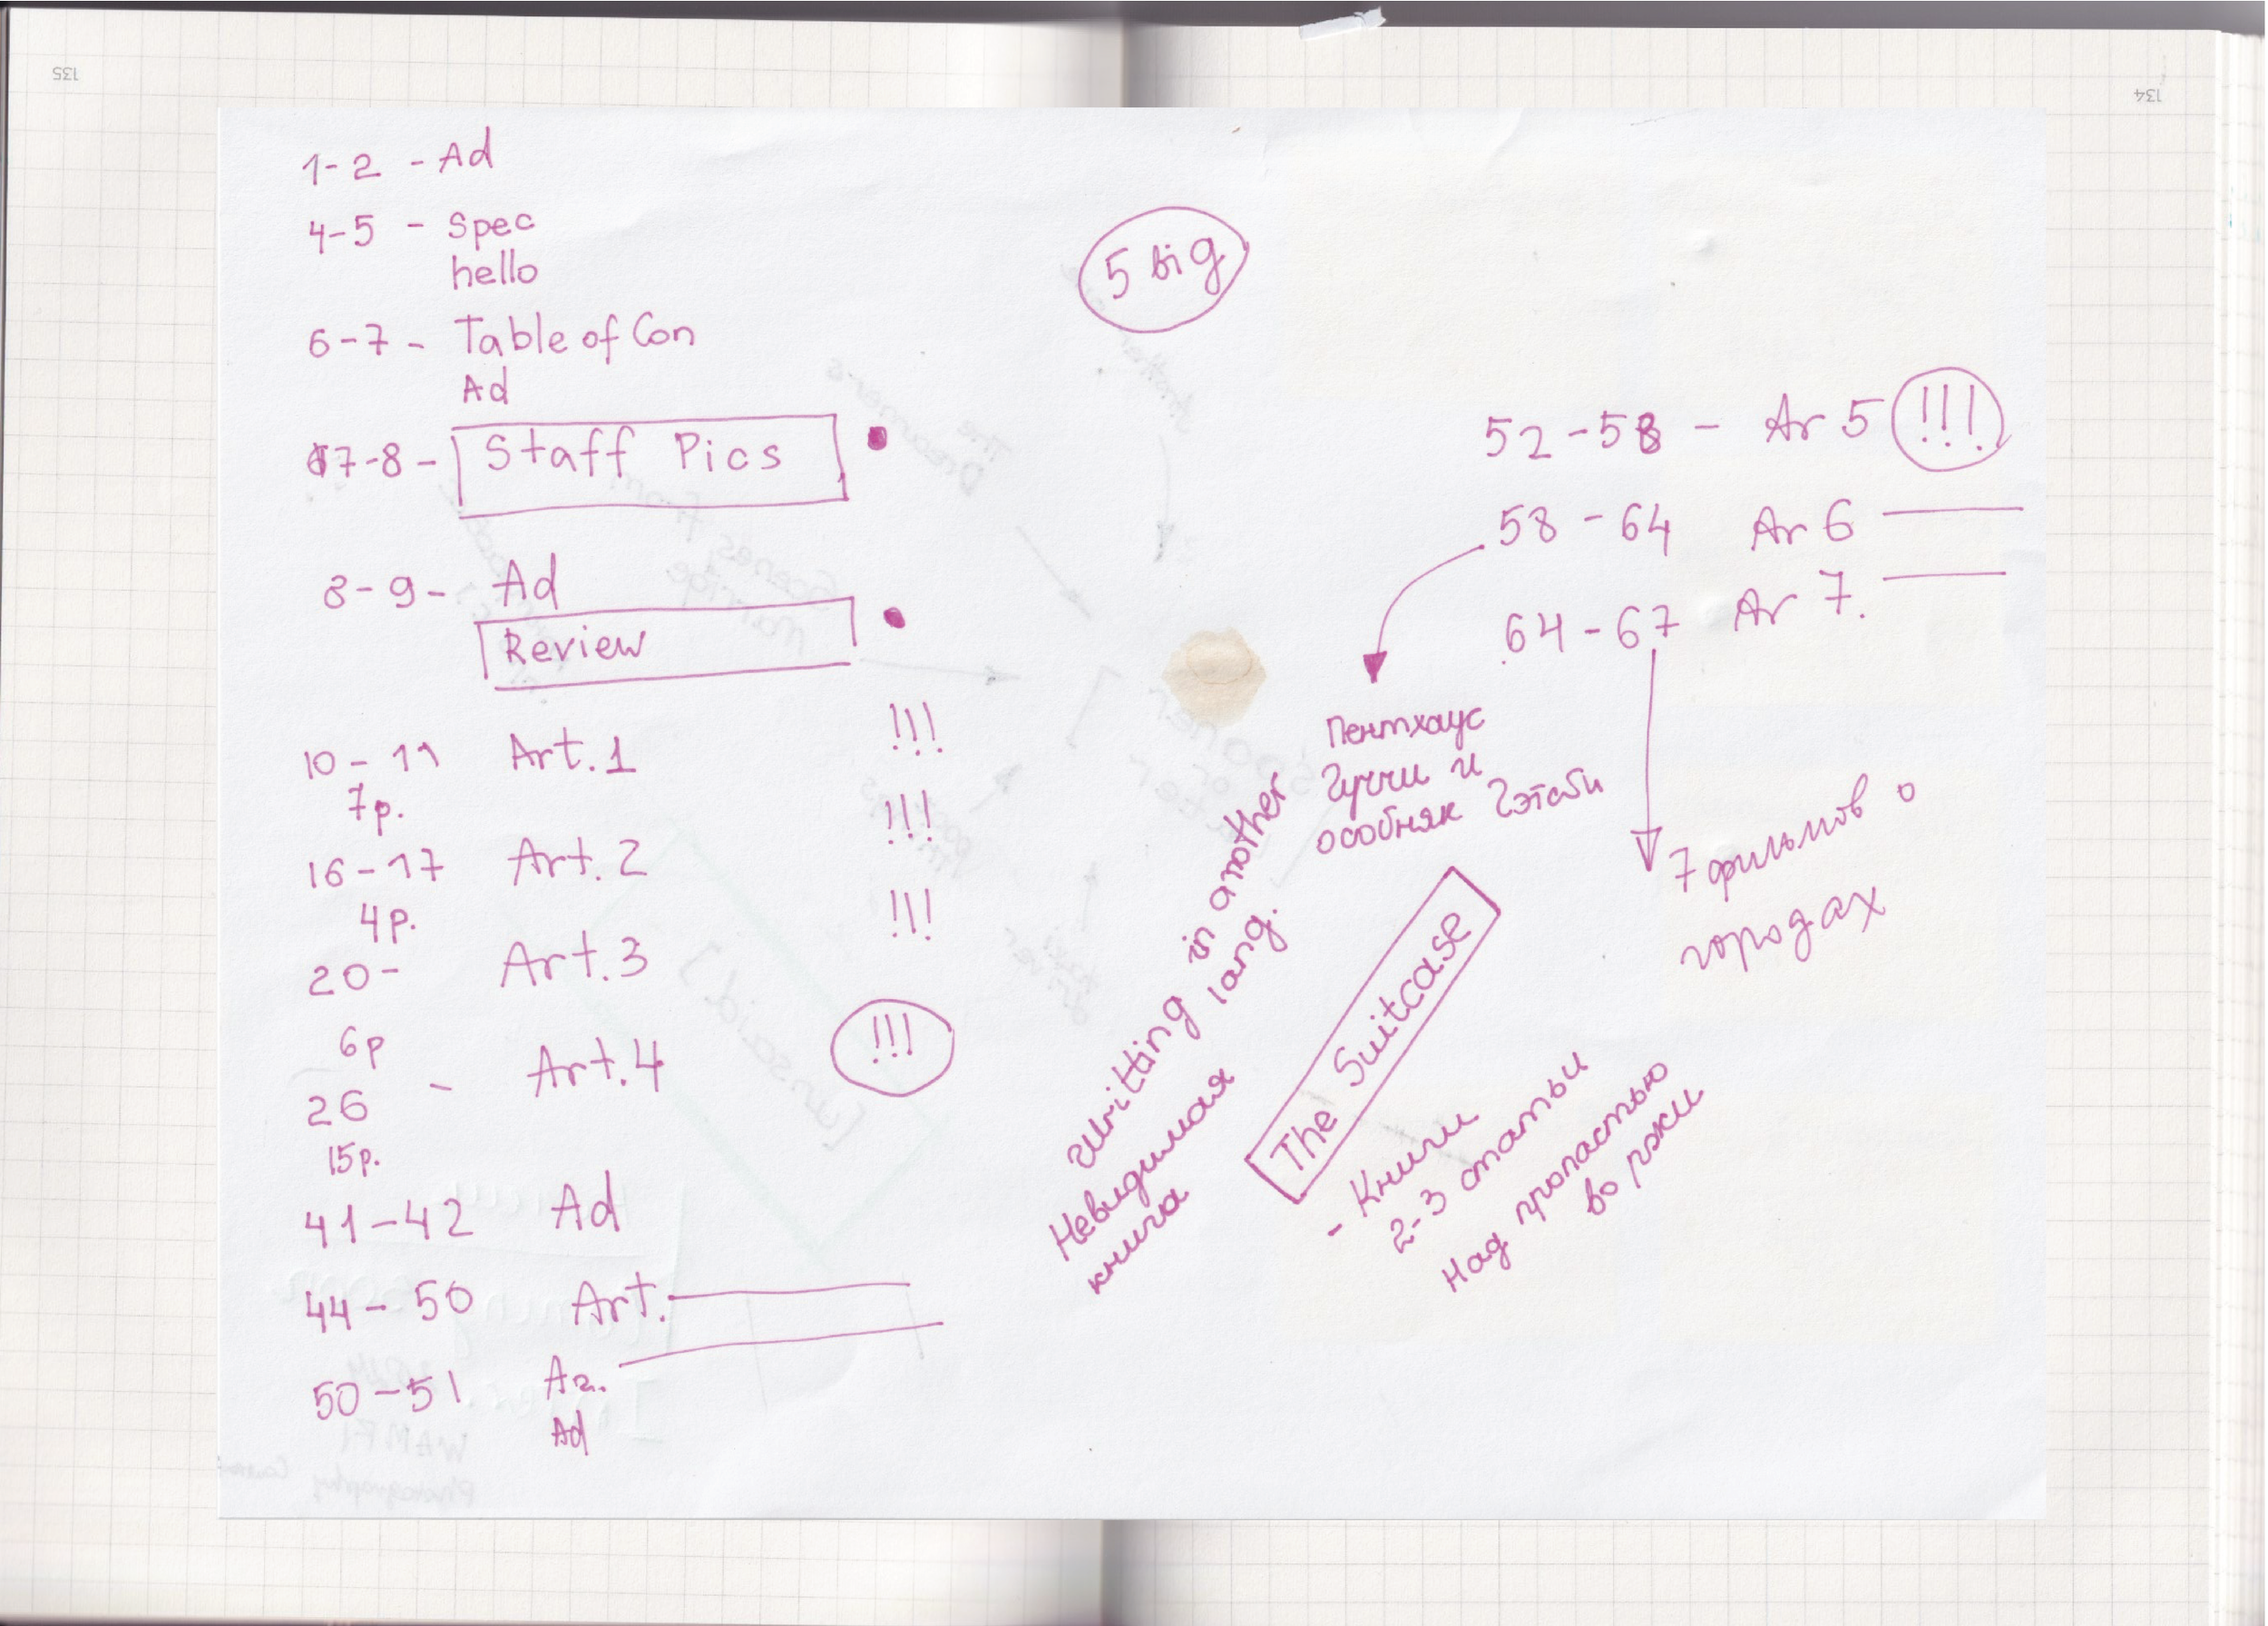 135
134
1-2 - Ad
4-5 - Spec
hello
6-7 - Table of Con
Ad
7-8 - Staff Pics
8-9 - Ad
Review
10-11 Art. 1 !!!
7p.
16-17 Art. 2 !!!
4p.
20- Art. 3 !!!
6p
26 - Art. 4 !!!
15p.
41-42 Ad
44-50 Art.
50-51
Ad
5 big
52-58 - Ar 5 !!!
58-64 Ar 6
64-67 Ar 7.
Пентхаус
Гуччи и
особняк Гэтсби
7 фильмов о
городах
Writting in another
lang.
Невидимая
книга
The Suitcase
- Книги
2-3 статьи
Над пропастью
во ржи